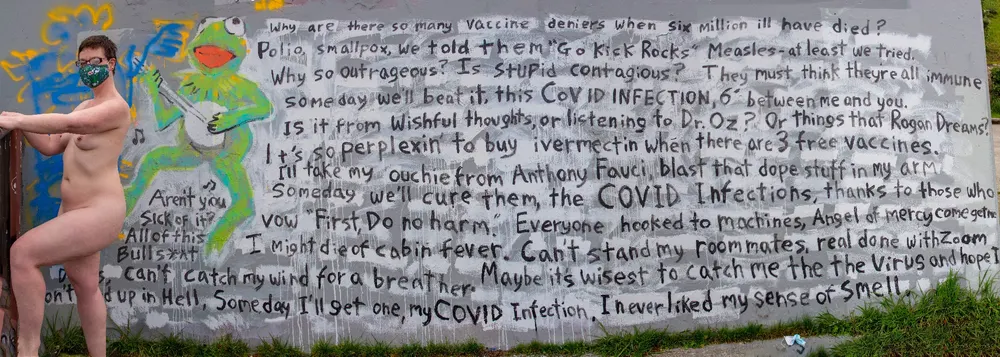 Why are there so many vaccine deniers when Six million ill have died?
Polio, smallpox, we told them "Go Kick Rocks" Measles-at least we tried.
Why so outrageous? Is Stupid contagious? They must think theyre all immune
someday we'll beat it, this COVID INFECTION, 6' between me and you.
Is it from Wishful thoughts, or listening to Dr. Oz? Or things that Rogan Dreams?
It's, so perplexin' to buy ivermectin when there are 3 free vaccines.
I'll take my ouchie from Anthony Fauci, blast that dope stuff in my arm
Someday we'll cure them, the COVID Infections, thanks to those who
vow "First, Do no harm." Everyone hooked to machines, Angel of mercy come get me
I might die of cabin fever. Can't stand my roommates, real done with Zoom
can't catch my wind for a breather. Maybe its wisest to catch me the the Virus and hope I
up in Hell, Someday I'll get one, my COVID Infection, I never liked my sense of Smell.
Aren't you
Sick of it?
All of this
Bulls*At